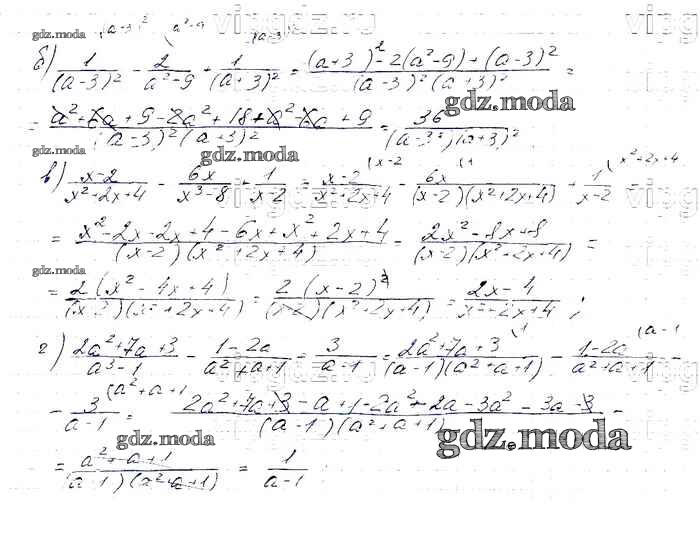 (a-3)² (a²-9 (a-3)²
б) 1/(a-3)² - 2/(a²-9) + 1/(a+3)² = ((a+3)² - 2(a²-9) + (a-3)²)/((a-3)²(a+3)²) =
= (a²+6a+9-2a²+18+a²-6a+9)/((a-3)²(a+3)²) = 36/((a-3)²(a+3)²)
gdz.moda
в) (x-2)/(x²+2x+4) - 6x/(x³-8) + 1/(x-2) = (x-2)/(x²+2x+4) (x-2 - 6x/((x-2)(x²+2x+4)) (1 + 1/(x-2) (x²+2x+4 =
= (x²-2x-2x+4-6x+x²+2x+4)/((x-2)(x²+2x+4)) = (2x²-8x+8)/((x-2)(x²+2x+4)) =
gdz.moda
= 2(x²-4x+4)/((x-2)(x²+2x+4)) = 2(x-2)²/((x-2)(x²+2x+4)) = (2x-4)/(x²+2x+4);
г) (2a²+7a+3)/(a³-1) - (1-2a)/(a²+a+1) = 3/(a-1) = (2a²+7a+3)/((a-1)(a²+a+1)) (1 - (1-2a)/(a²+a+1) (a-1 -
- 3/(a-1) (a²+a+1 = (2a²+7a+3-a+1-2a²-2a-3a²-3a-3)/((a-1)(a²+a+1)) =
gdz.moda
= (a²+a+1)/((a-1)(a²+a+1)) = 1/(a-1)